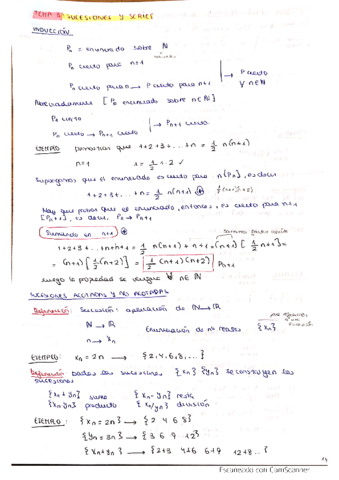 TEMA 6: SUCESIONES Y SERIES
INDUCCIÓN
Pn = enunciado sobre ℕ
Pn cierto para n=1
Pn cierto para n → P cierto para n+1 → P cierto ∀ n∈ℕ
Abreviadamente [Pn enunciado sobre n∈ℕ]
P1 cierto
Pn cierto → Pn+1 cierto → Pn+1 cierto
EJEMPLO: Demostrar que 1+2+3+...+n = 1/2 n(n+1)
n=1 1 = 1/2 · 1 · 2 ✓
Supongamos que el enunciado es cierto para n (Pn), es decir
1+2+3+...+n = 1/2 n(n+1)
Hay que probar que el enunciado, entonces, es cierto para n+1
[Pn+1], es decir, Pn → Pn+1
Sumando en n+1
1+2+3+...+n+n+1 = 1/2 n(n+1) + n+1 = (n+1) [1/2 n+1] =
= (n+1) [1/2 (n+2)] = 1/2 (n+1)(n+2) Pn+1
luego la propiedad se verifica ∀ n∈ℕ
SUCESIONES ACOTADAS Y NO ACOTADAS
Definición: Sucesión: aplicación de ℕ→ℝ
ℕ → ℝ Enumeración de nº reales {xn}
n → xn
EJEMPLO: xn = 2n → {2, 4, 6, 8, ...}
Definición: Dadas las sucesiones {xn} {yn} se construyen las
sucesiones
{xn + yn} suma {xn - yn} resta
{xn yn} producto {xn/yn} división
EJEMPLO: {xn = 2n} → {2 4 6 8}
{yn = 3n} → {3 6 9 12}
{xn + yn} → {2+3 4+6 6+9 12+8...}
Escaneado con CamScanner